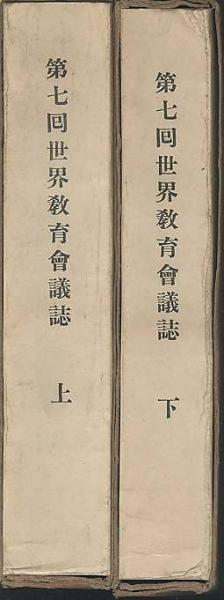 第七回世界教育會議誌 上
第七回世界教育會議誌 下